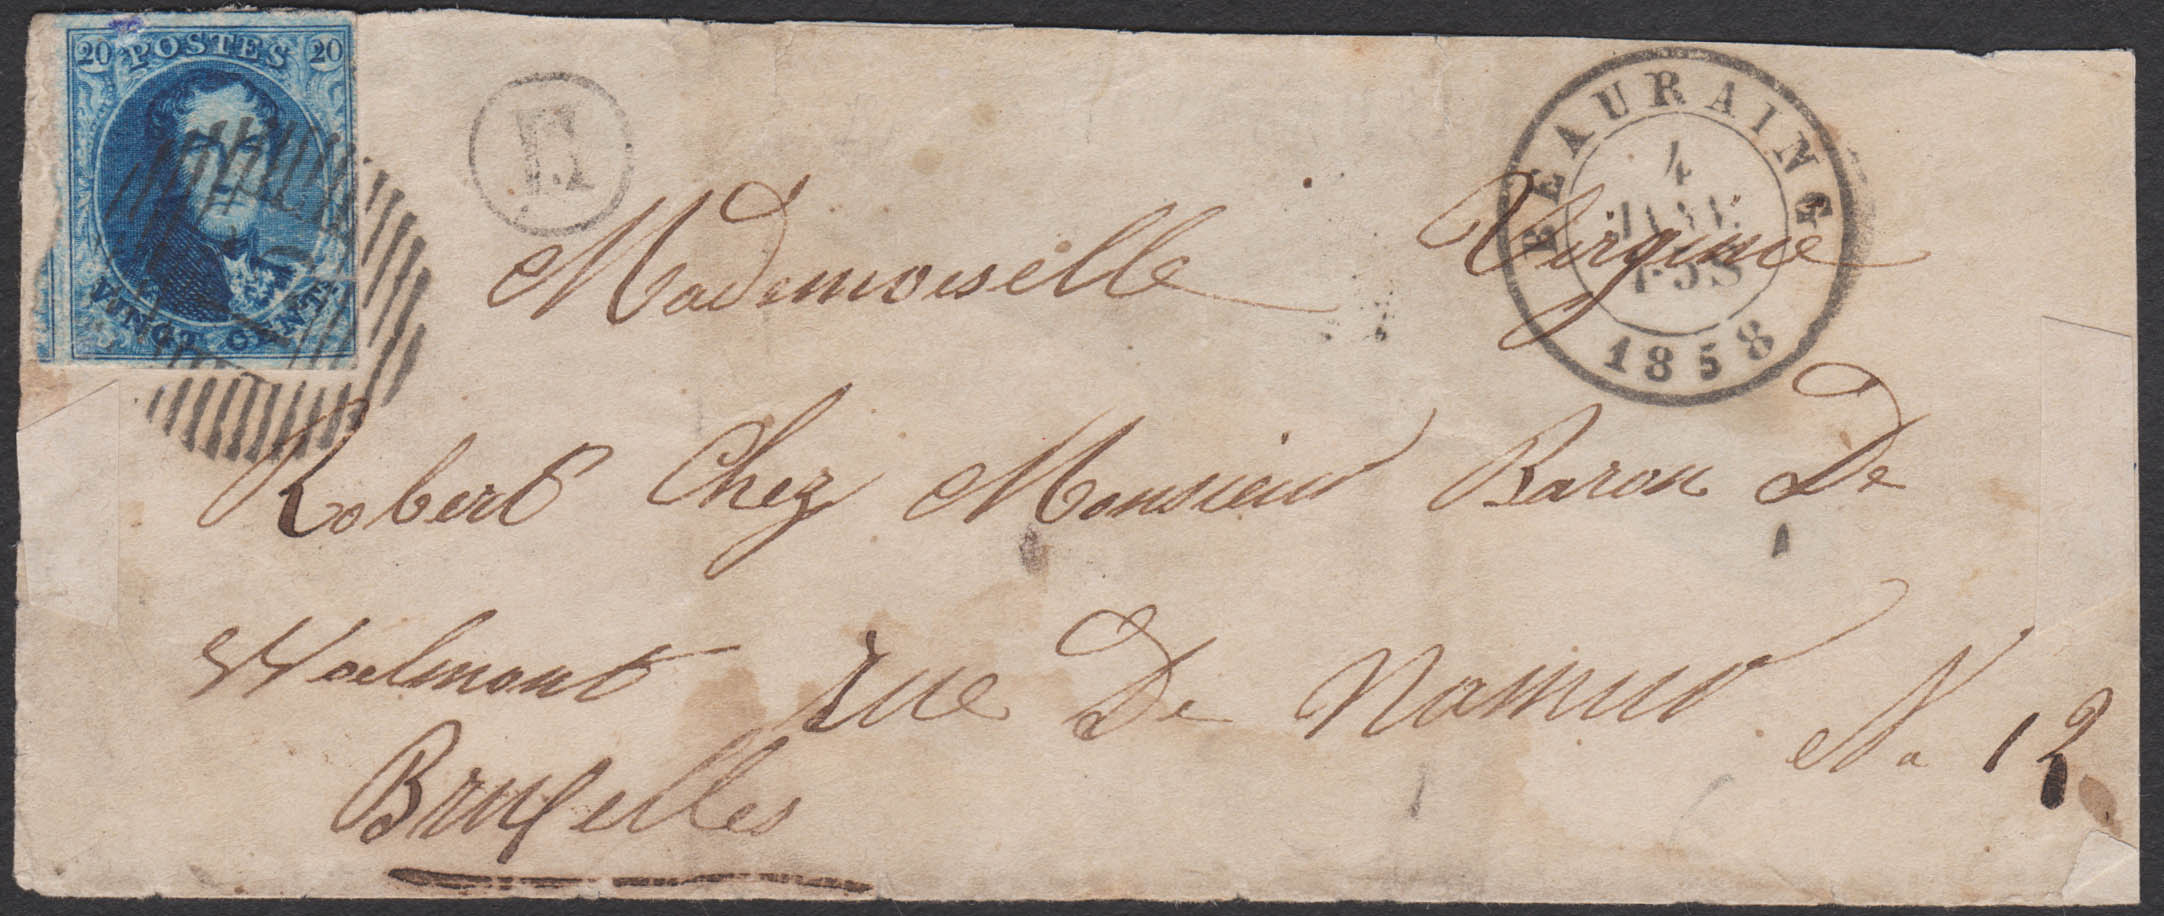 20 POSTES 20
VINGT CENTS
E
BEAURAING
4
JANV
1858
Mademoiselle Virginie
Robert Chez Monsieur Baron De
Woelmont rue De Namur No 12
Bruxelles